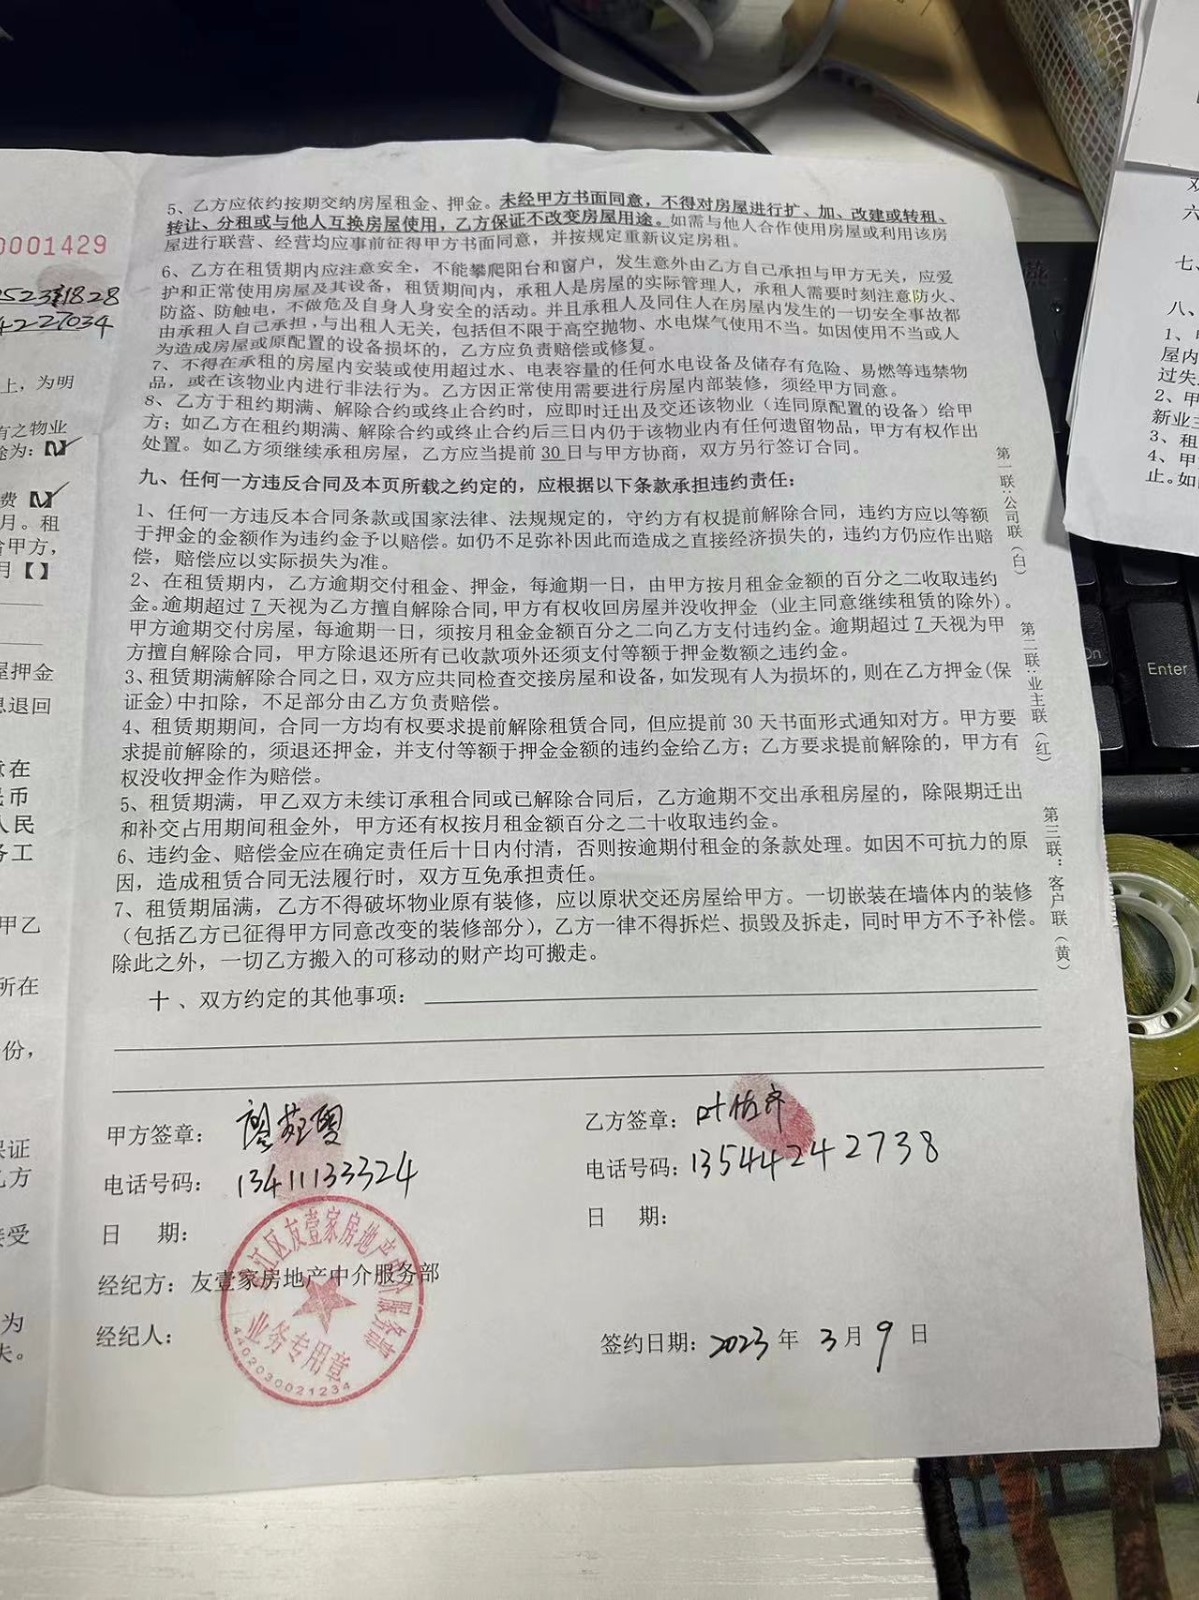 0001429
上，为明
有之物业
途为：【
费
月。租
合甲方，
月【】
屋押金
息退回
意在
民币
人民
务工
甲乙
所在
份，
保证
乙方
接受
为
失。
5、乙方应依约按期交纳房屋租金、押金。未经甲方书面同意，不得对房屋进行扩、加、改建或转租、
转让、分租或与他人互换房屋使用，乙方保证不改变房屋用途。如需与他人合作使用房屋或利用该房
屋进行联营、经营均应事前征得甲方书面同意，并按规定重新议定房租。
6、乙方在租赁期内应注意安全，不能攀爬阳台和窗户，发生意外由乙方自己承担与甲方无关，应爱
护和正常使用房屋及其设备，租赁期间内，承租人是房屋的实际管理人，承租人需要时刻注意防火、
防盗、防触电，不做危及自身人身安全的活动。并且承租人及同住人在房屋内发生的一切安全事故都
由承租人自己承担，与出租人无关，包括但不限于高空抛物、水电煤气使用不当。如因使用不当或人
为造成房屋或原配置的设备损坏的，乙方应负责赔偿或修复。
7、不得在承租的房屋内安装或使用超过水、电表容量的任何水电设备及储存有危险、易燃等违禁物
品，或在该物业内进行非法行为。乙方因正常使用需要进行房屋内部装修，须经甲方同意。
8、乙方于租约期满、解除合约或终止合约时，应即时迁出及交还该物业（连同原配置的设备）给甲
方；如乙方在租约期满、解除合约或终止合约后三日内仍于该物业内有任何遗留物品，甲方有权作出
处置。如乙方须继续承租房屋，乙方应当提前 30 日与甲方协商，双方另行签订合同。
九、任何一方违反合同及本页所载之约定的，应根据以下条款承担违约责任：
1、任何一方违反本合同条款或国家法律、法规规定的，守约方有权提前解除合同，违约方应以等额
于押金的金额作为违约金予以赔偿。如仍不足弥补因此而造成之直接经济损失的，违约方仍应作出赔
偿，赔偿应以实际损失为准。
2、在租赁期内，乙方逾期交付租金、押金，每逾期一日，由甲方按月租金金额的百分之二收取违约
金。逾期超过 7 天视为乙方擅自解除合同，甲方有权收回房屋并没收押金（业主同意继续租赁的除外）。
甲方逾期交付房屋，每逾期一日，须按月租金金额百分之二向乙方支付违约金。逾期超过 7 天视为甲
方擅自解除合同，甲方除退还所有已收款项外还须支付等额于押金数额之违约金。
3、租赁期满解除合同之日，双方应共同检查交接房屋和设备，如发现有人为损坏的，则在乙方押金(保
证金)中扣除，不足部分由乙方负责赔偿。
4、租赁期期间，合同一方均有权要求提前解除租赁合同，但应提前 30 天书面形式通知对方。甲方要
求提前解除的，须退还押金，并支付等额于押金金额的违约金给乙方；乙方要求提前解除的，甲方有
权没收押金作为赔偿。
5、租赁期满，甲乙双方未续订承租合同或已解除合同后，乙方逾期不交出承租房屋的，除限期迁出
和补交占用期间租金外，甲方还有权按月租金额百分之二十收取违约金。
6、违约金、赔偿金应在确定责任后十日内付清，否则按逾期付租金的条款处理。如因不可抗力的原
因，造成租赁合同无法履行时，双方互免承担责任。
7、租赁期届满，乙方不得破坏物业原有装修，应以原状交还房屋给甲方。一切嵌装在墙体内的装修
（包括乙方已征得甲方同意改变的装修部分），乙方一律不得拆烂、损毁及拆走，同时甲方不予补偿。
除此之外，一切乙方搬入的可移动的财产均可搬走。
十、双方约定的其他事项：
甲方签章：
电话号码：13411133324
日 期：
经纪方：友壹家房地产中介服务部
经纪人：
乙方签章：叶佐齐
电话号码：13544242738
日 期：
签约日期：2023 年 3 月 9 日
江区友壹家房地产中介服务部
业务专用章
4402030021234
第一联：公司联（白）
第二联：业主联（红）
第三联：客户联（黄）
六
七、
八、
1、
屋内
过失
2、甲
新业主
3、租
4、甲
止。如
Enter